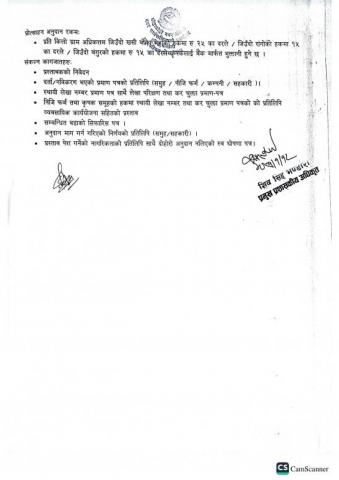 प्रोत्साहन अनुदान रकमः
• प्रति किलो ग्राम अधिकतम जिउँदो खसी हकमा रु २५ का दरले / जिउँदो रागोको हकमा १५
का दरले / जिउँदो बंगुरको हकमा रु १५ का बैंक मार्फत भुक्तानी हुने छ ।
संलग्न कागजातहरुः
• प्रस्तावकको निवेदन
• दर्ता/नविकरण भएको प्रमाण पत्रको प्रतिलिपि (समुह / नीजि फर्म / कम्पनी / सहकारी )।
• स्थायी लेखा नम्बर प्रमाण पत्र साथै लेखा परिक्षण तथा कर चुक्ता प्रमाण-पत्र
• निजि फर्म तथा कृषक समुहको हकमा स्थायी लेखा नम्बर तथा कर चुक्ता प्रमाण पत्रको को प्रतिलिपि
व्यवसायिक कार्ययोजना सहितको प्रस्ताव
• सम्बन्धित वडाको सिफारिस पत्र ।
• अनुदान माग गर्ने गरिएको निर्णयको प्रतिलिपि (समुह/सहकारी) ।
• प्रस्ताव पेश गर्नेको नागरिकताको प्रतिलिपी साथै दोहोरो अनुदान नलिएको स्व घोषणा पत्र।
शिव सिंह भण्डारी
प्रमुख प्रशासकीय अधिकृत
CS CamScanner